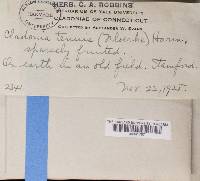 HERB. C. A. ROBBINS
HERBARIUM OF YALE UNIVERSITY
CLADONIAE OF CONNECTICUT
COLLECTED BY ALEXANDER W. EVANS
Cladonia tenuis (Floerke) Harm.
sparsely fruited.
On earth in an old field. Stanford.
2341 Nov. 22, 1925.